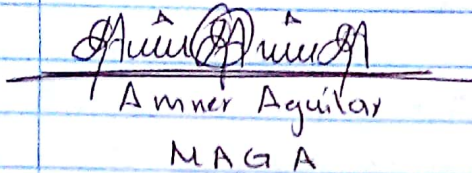 Amner Aguilar
MAGA